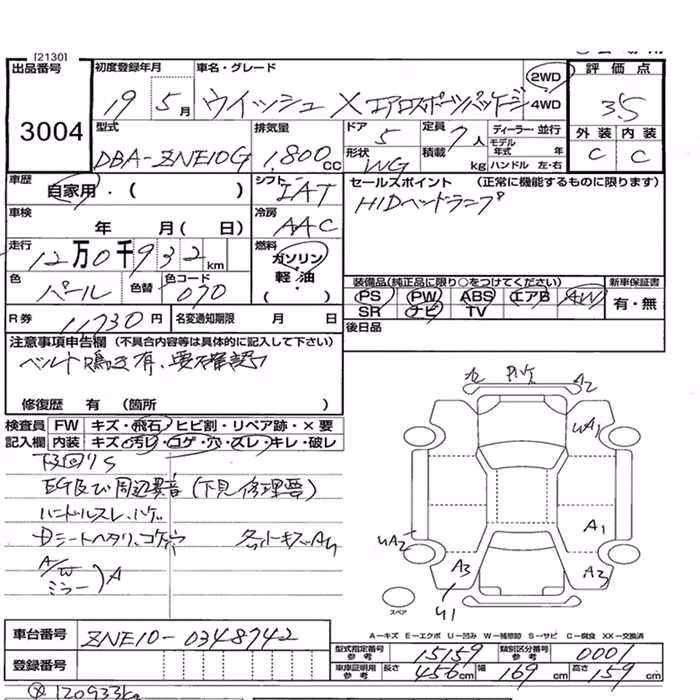 [2130]
出品番号 初度登録年月 車名・グレード 2WD 4WD 評価点
3004 19 5月 ウイッシュ X エアロスポーツパッケージ 3.5
型式 排気量 ドア 定員 ディーラー・並行 外装 内装
DBA-ZNE10G 1,800cc 5 7人 モデル年式 年 C C
形状 WG 積載 kg ハンドル 左・右
車歴 自家用・( ) シフト IAT セールスポイント (正常に機能するものに限ります)
車検 年 月( 日) 冷房 AAC HIDヘッドランプ
走行 12万0千932km 燃料 ガソリン 軽・油 ( )
色 パール 色替 色コード 070 装備品(純正品に限り○をつけてください) 新車保証書
PS PW ABS エアB AW 有・無
SR ナビ TV
R券 11730円 名変通知期限 月 日 後日品
注意事項申告欄 (不具合内容等は具体的に記入して下さい)
ベルト鳴き有、要確認
修復歴 有 (箇所 )
検査員 FW キズ・飛石・ヒビ割・リペア跡・×要
記入欄 内装 キズ・汚レ・コゲ・穴・スレ・キレ・破レ
下回りS
EG及び周辺異音(下見修理要)
ハンドルスレ、ハゲ
Dシートヘタリ、コゲ穴 各ルーキズ
A/W ミラー )A
A2 ハゲ A2
UA1
UA2 A1
A3 A3
U1
スペア
A-キズ E-エクボ U-凹み W-補修跡 S-サビ C-腐食 XX-交換済
車台番号 ZNE10-0348742
登録番号
型式指定番号 参考 15159 類別区分番号 参考 0001
車庫証明用 参考 長さ 456cm 幅 169cm 高さ 159cm
120933km